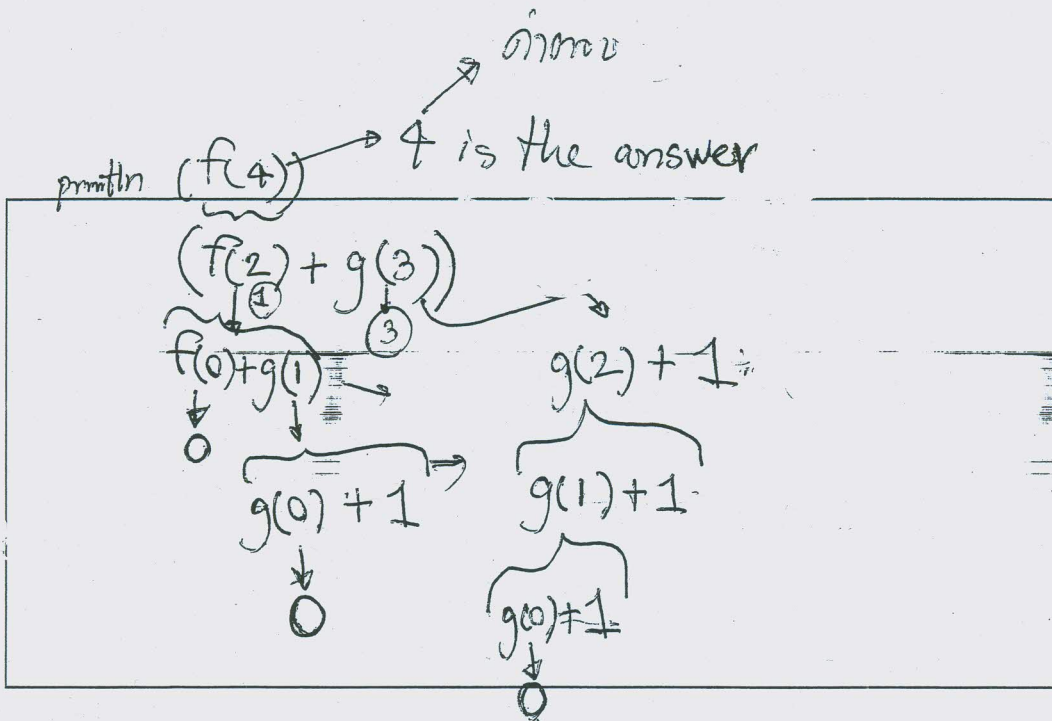 คำตอบ
println (f(4)) → 4 is the answer
(f(2) + g(3))
1
3
f(0)+g(1)
g(2) + 1
0
g(0) + 1
g(1) + 1
0
g(0)+1
0